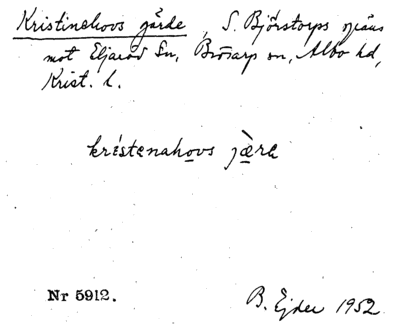 Kristinehovs gärde, S. Björstorps gräns
mot Eljaröd sn, Brösarp sn, Albo hd,
Krist. l.
kristenahovs jære
Nr 5912.
B. Ejder 1952